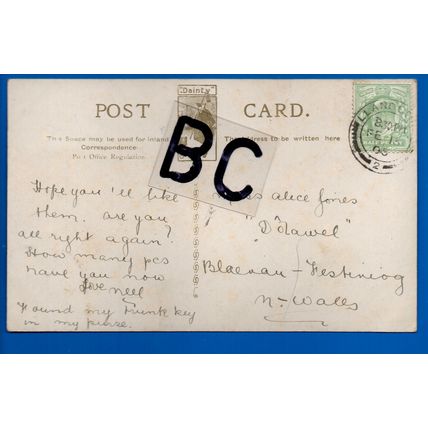 Dainty
POST CARD.
This Space may be used for inland
Correspondence.
Post Office Regulation.
Address to be written here
BC
Hope you'll like
them. are you
all right again?
How many pcs
have you now
love nell
Found my Trunk key
in my purse.
Miss alice Jones
Blaenau-Festiniog
N-Wales
LLAN
2